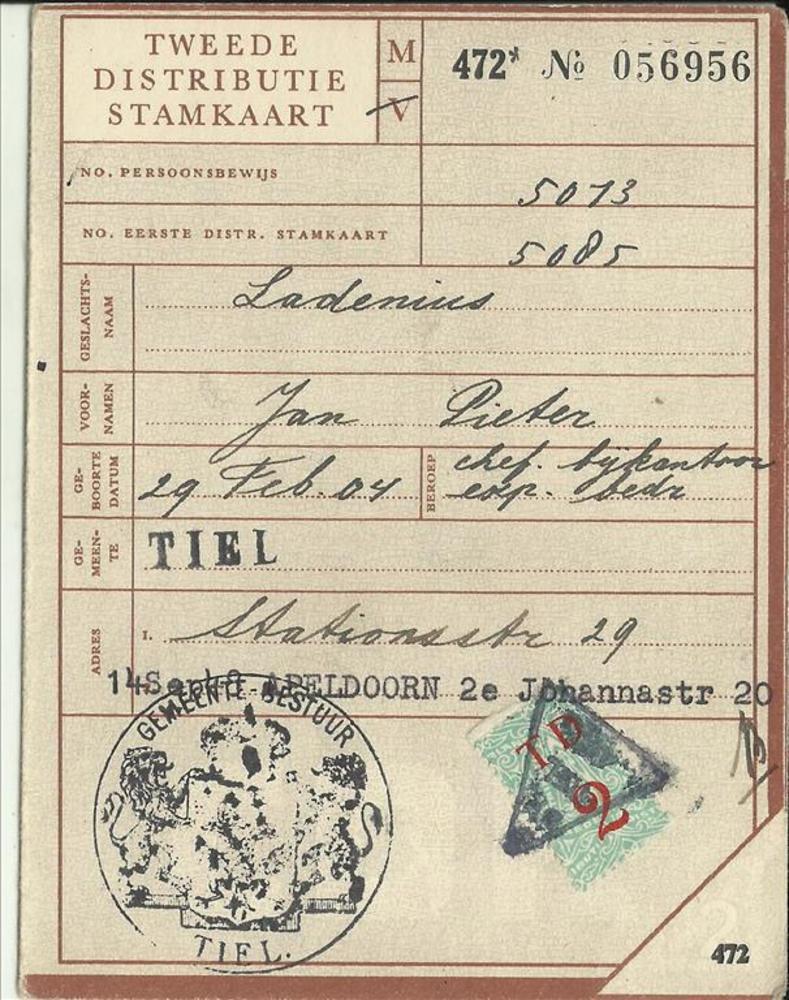 TWEEDE
DISTRIBUTIE
STAMKAART
M
V
472* No 056956
NO. PERSOONSBEWIJS
5013
NO. EERSTE DISTR. STAMKAART
5085
GESLACHTS-
NAAM
Ladenius
VOOR-
NAMEN
Jan Pieter
GE-
BOORTE
DATUM
29 Feb. 04
BEROEP
chef. bijkantoor
exp. bedr
GE-
MEEN-
TE
TIEL
ADRES
1. Stationsstr 29
14 Sept 8 - APELDOORN 2e Johannastr 20
GEMEENTE-BESTUUR
TIEL.
TD
2
472